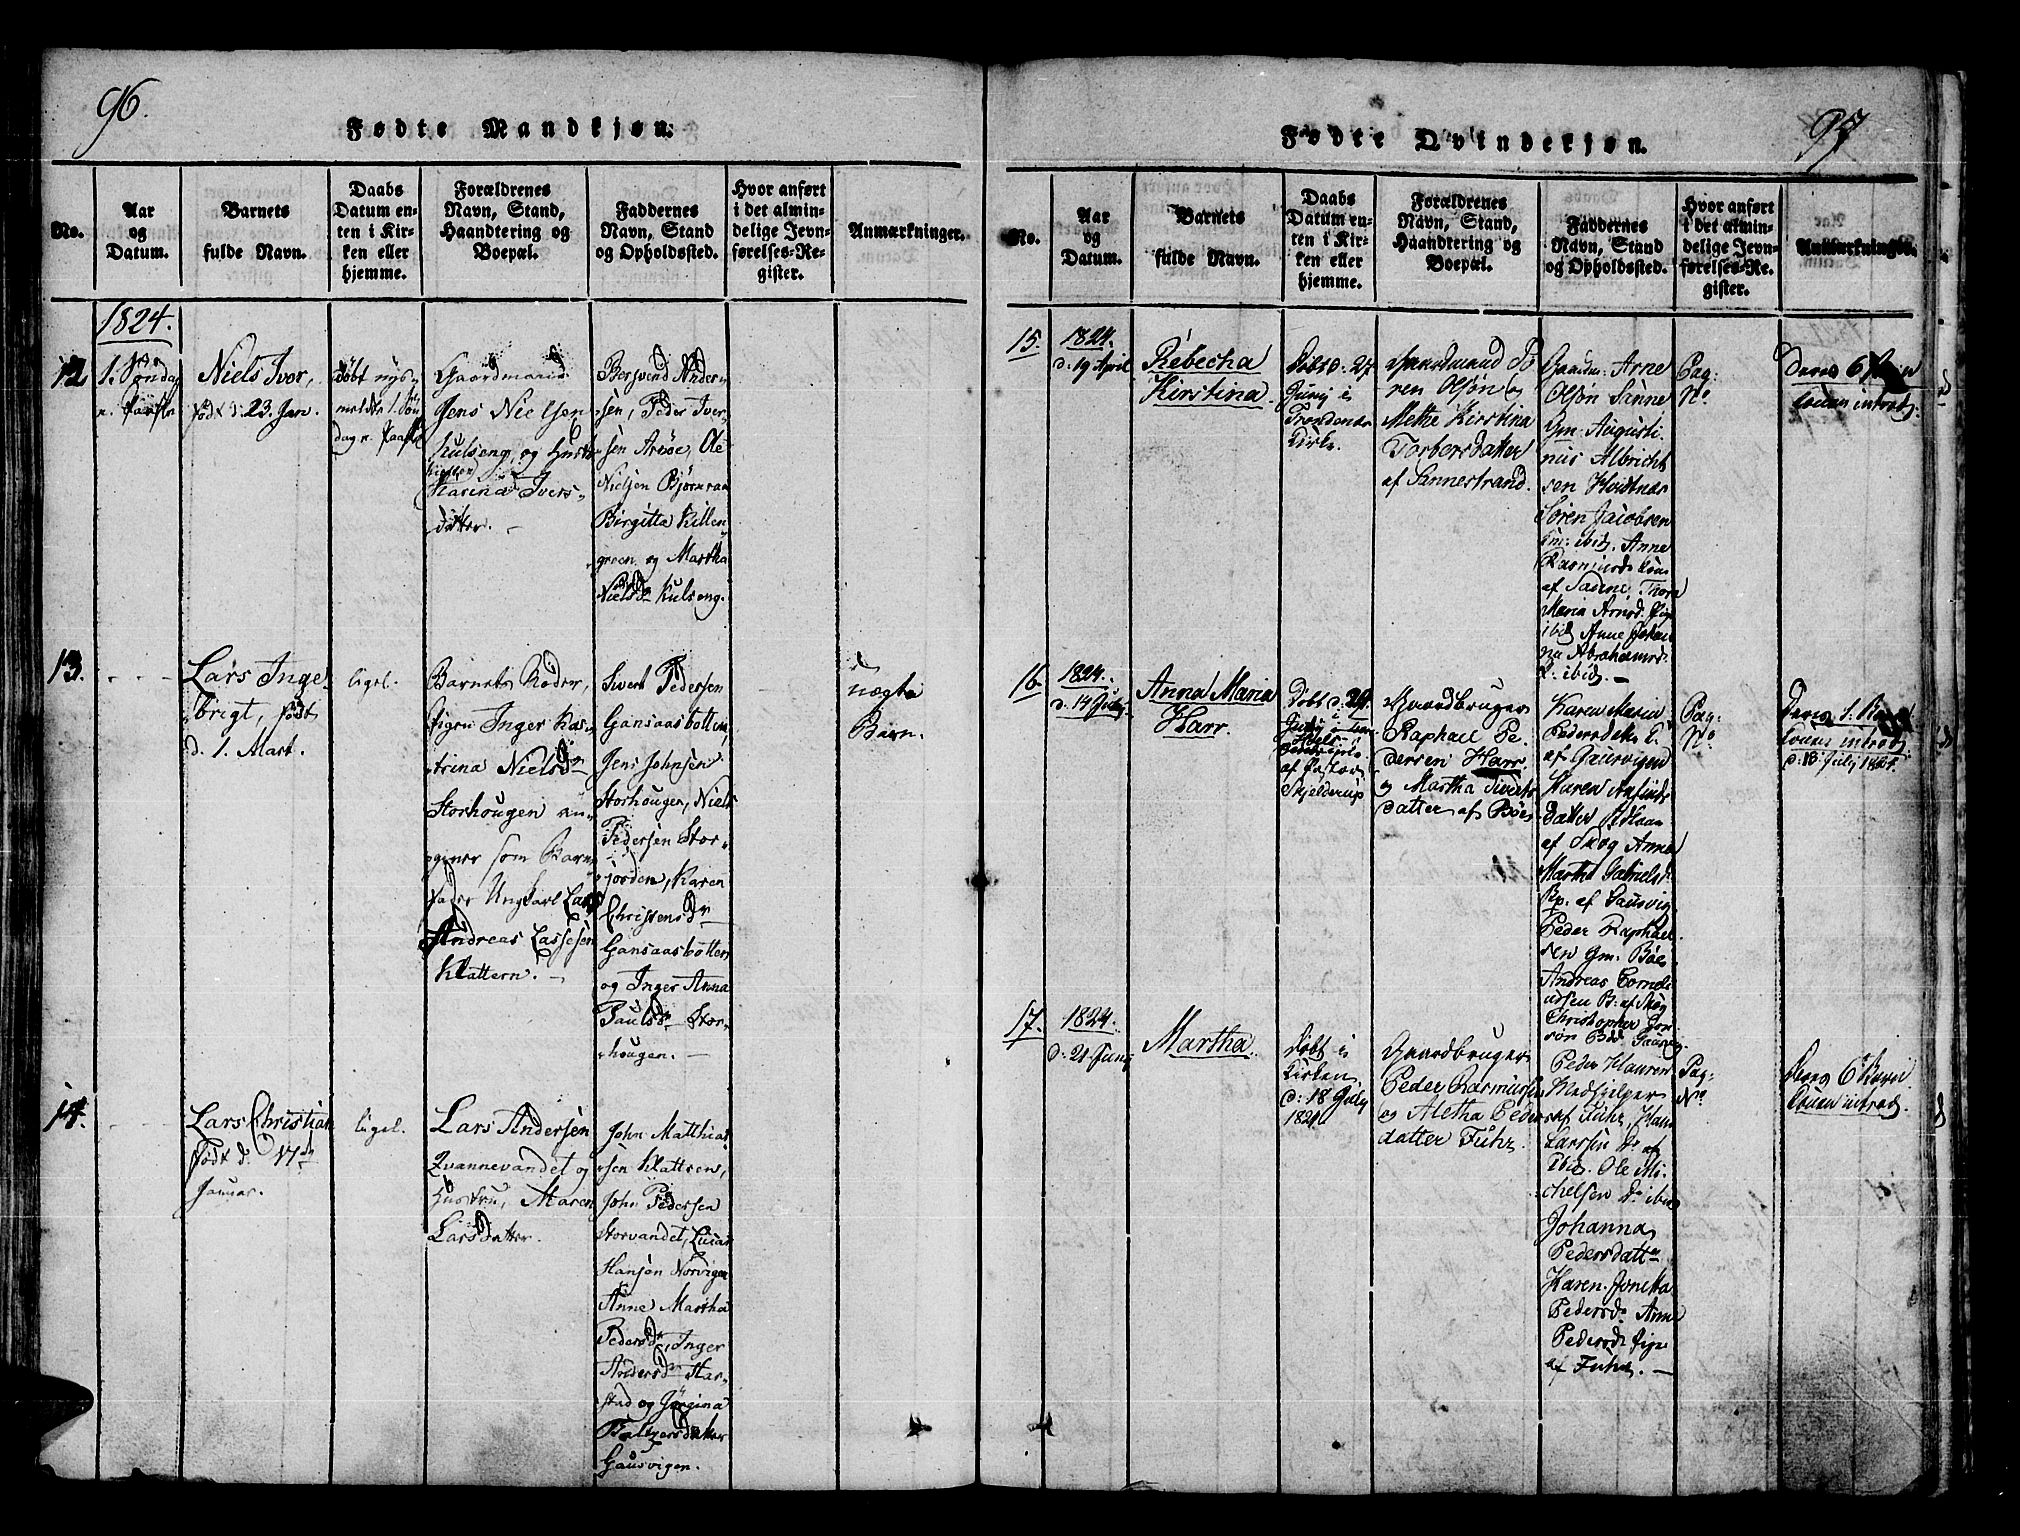 96.
Fødte Mandkjøn.
No.
Aar
og
Datum.
Barnets
fulde Navn.
Daabs
Datum en-
ten i Kir-
ken eller
hjemme.
Forældrenes
Navn, Stand,
Haandtering og
Boepæl.
Faddernes
Navn, Stand
og Opholdssted.
Hvor anført
i det almin-
delige Jevn-
førelses-Re-
gister.
Anmærkninger.
1824.
12
1. Søndag
Niels Ivor,
født d: 23. Jan.
døbt
1. Søn
dag
Gaardmand
Jens Nielsen
Kulseng, og Hustr
Karina Ivers-
datter.
Berjvend Ander-
sen, Peder Iver-
sen Aröe, Ole
Nielsen Bjørnraa
Birgitta Killen-
green og Martha
Nielsdr Kulseng.
13.
Lars Inge-
brigt, født
d. 1. Mart.
ligel.
Barnets Moder,
Pigen Inger Ka-
trina Nielsdr
Storhougen an-
giver som Barne-
fader Ungkarl Lars
Andreas Lassesen
Klattern.
Sivert Pedersen
Gansaasbotten,
Jens Johnsen
Storhougen, Niels
Pedersen Stor-
jorden, Karen
Christensdr
Gansaasbotten
og Inger Anna
Paulsdr Stor-
hougen.
uægte
Barn.
14.
Lars Christian
Født d: 17de
Januar.
ligel.
Lars Andersen
Qvannevandet og
Hustru, Maren
Larsdatter.
John Matthias-
sen Klattren,
John Pedersen
Storvandet, Lucas
Hansen Norvigen
Anne Martha
Pedersdr, Inger
Andersdr Har-
stad og Jørgina
Baltzersdatter
Gausvigen.
97
Fødte Qvindekjøn.
No.
Aar
og
Datum.
Barnets
fulde Navn.
Daabs
Datum en-
ten i Kir-
ken eller
hjemme.
Forældrenes
Navn, Stand,
Haandtering og
Boepæl.
Faddernes
Navn, Stand
og Opholdssted.
Hvor anført
i det almin-
delige Jevn-
førelses-Re-
gister.
Anmærkninger.
15.
1824.
d. 19 April
Rebecha
Kirstina.
Døbt d. 27
Junij i
Trondenæs
Kirke.
Olsøn og
Methe Kirstina
Torbersdatter
af Sannestrand.
Gaardm: Arne
Olsøn Sanne
Gm. Augusti-
nus Albricht
sen Hvidtnæs
Søren Jacobsen
Gm: ibid. Anne
af Sanne, Thora
Maria Arnsd. Pig
ibid Anne Johan
na Abrahamsd.
P. ibid. —
Pag:
No
Deres 6
Konen introd.
16
1824.
d. 14 Juny
Anna Maria
Harr.
Døbt d: 24.
af Pastor
Skjelderup
Gaardbruger
Raphael Pe-
dersen Harr
og Martha Siverts
datter af Böes
Karen Maria
af Gausvigen
Karen Anfinds
datter
af Skog Anna
Martha Gabrielsd.
Pp. af Gausvig
Peder Raphael
sen Gm. Böes
Andreas Corneli
ussen B. af Skog
Christopher
Pag:
No
Deres 1. Barn
Konen introd.
d: 18 July 1824.
17.
1824.
d: 21 Juny
Martha.
Døbt i
Kirken
d: 18 July
1824.
Gaardbruger
Peder Rasmussen
og Aletha Peders
datter Fuhr.
Peder Hansen
Medhjelper
af Fuhr, Hans
Larssen Do af
ibid. Ole Mi-
chelsen Do ibid
Johanna
Pedersdattr
Karen Jonetta
Pedersdr Anne
Pedersdr Pige
af Fuhr. —
Pag:
No
Deres 6te Barn
Konen introd.